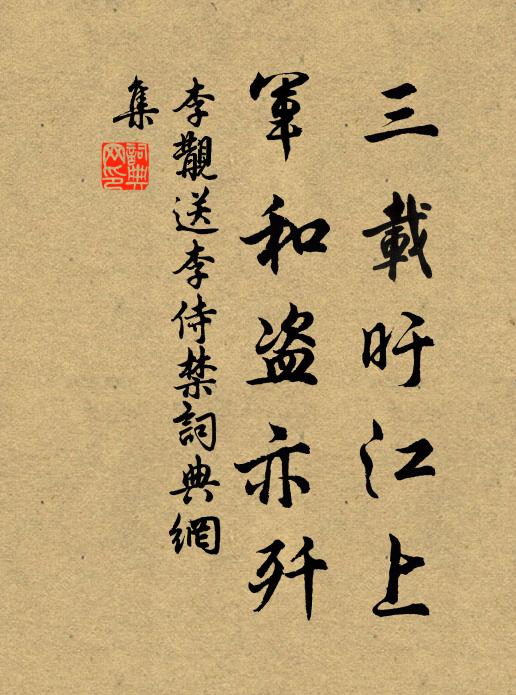 三載旴江上
軍和盜亦歼
李覯送李侍禁詞典網
集
詞典網印